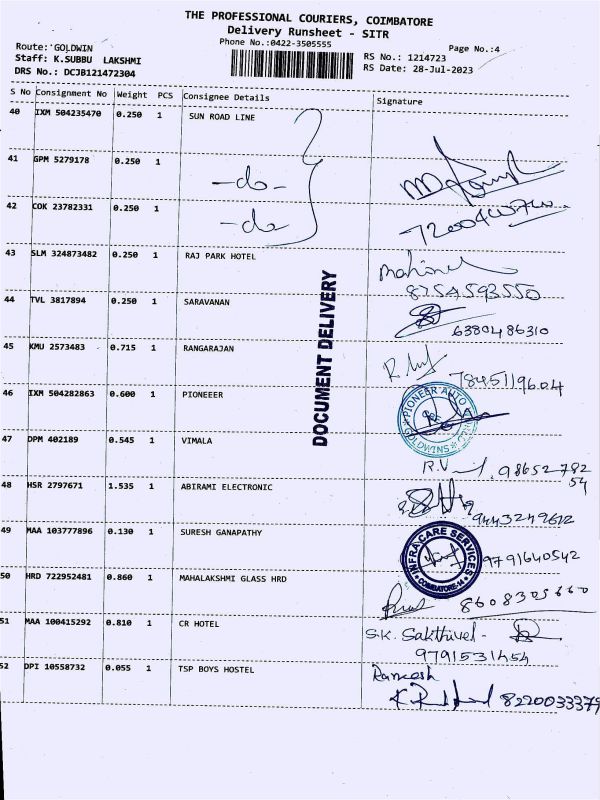 THE PROFESSIONAL COURIERS, COIMBATORE
Delivery Runsheet - SITR
Phone No.:0422-3505555
Page No.:4
Route: GOLDWIN
Staff: K.SUBBU LAKSHMI
DRS No.: DCJB121472304
RS No.: 1214723
RS Date: 28-Jul-2023
S No Consignment No Weight PCS Consignee Details Signature
40 IXM 504235470 0.250 1 SUN ROAD LINE
41 GPM 5279178 0.250 1 -do-
42 COK 23782331 0.250 1 -do-
43 SLM 324873482 0.250 1 RAJ PARK HOTEL
8754593550
44 TVL 3817894 0.250 1 SARAVANAN
6380486310
45 KMU 2573483 0.715 1 RANGARAJAN
7845119604
46 IXM 504282863 0.600 1 PIONEEER
PIONEER AUTO
GOLDWINS
47 DPM 402189 0.545 1 VIMALA
98652782
54
48 HSR 2797671 1.535 1 ABIRAMI ELECTRONIC
9443249612
49 MAA 103777896 0.130 1 SURESH GANAPATHY
INFRA CARE SERVICES
COIMBATORE-14
9791640542
50 HRD 722952481 0.860 1 MAHALAKSHMI GLASS HRD
8608305660
51 MAA 100415292 0.810 1 CR HOTEL
S.K. Sakthivel -
9791531454
52 DPI 10558732 0.055 1 TSP BOYS HOSTEL
Ramesh
8220033379
DOCUMENT DELIVERY